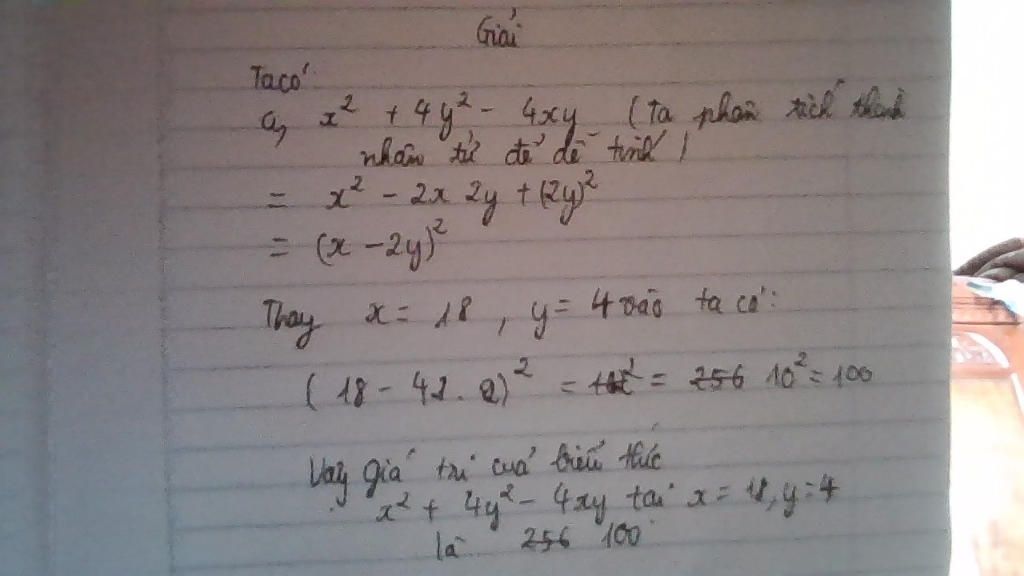 Giải
Ta có:
a, x² + 4y² - 4xy (Ta phân tích thành
nhân tử để dễ tính)
= x² - 2x 2y + (2y)²
= (x - 2y)²
Thay x = 18, y = 4 vào ta có:
(18 - 4 . 2)² = = 256 10² = 100
Vậy giá trị của biểu thức
x² + 4y² - 4xy tại x = 18, y = 4
là 256 100